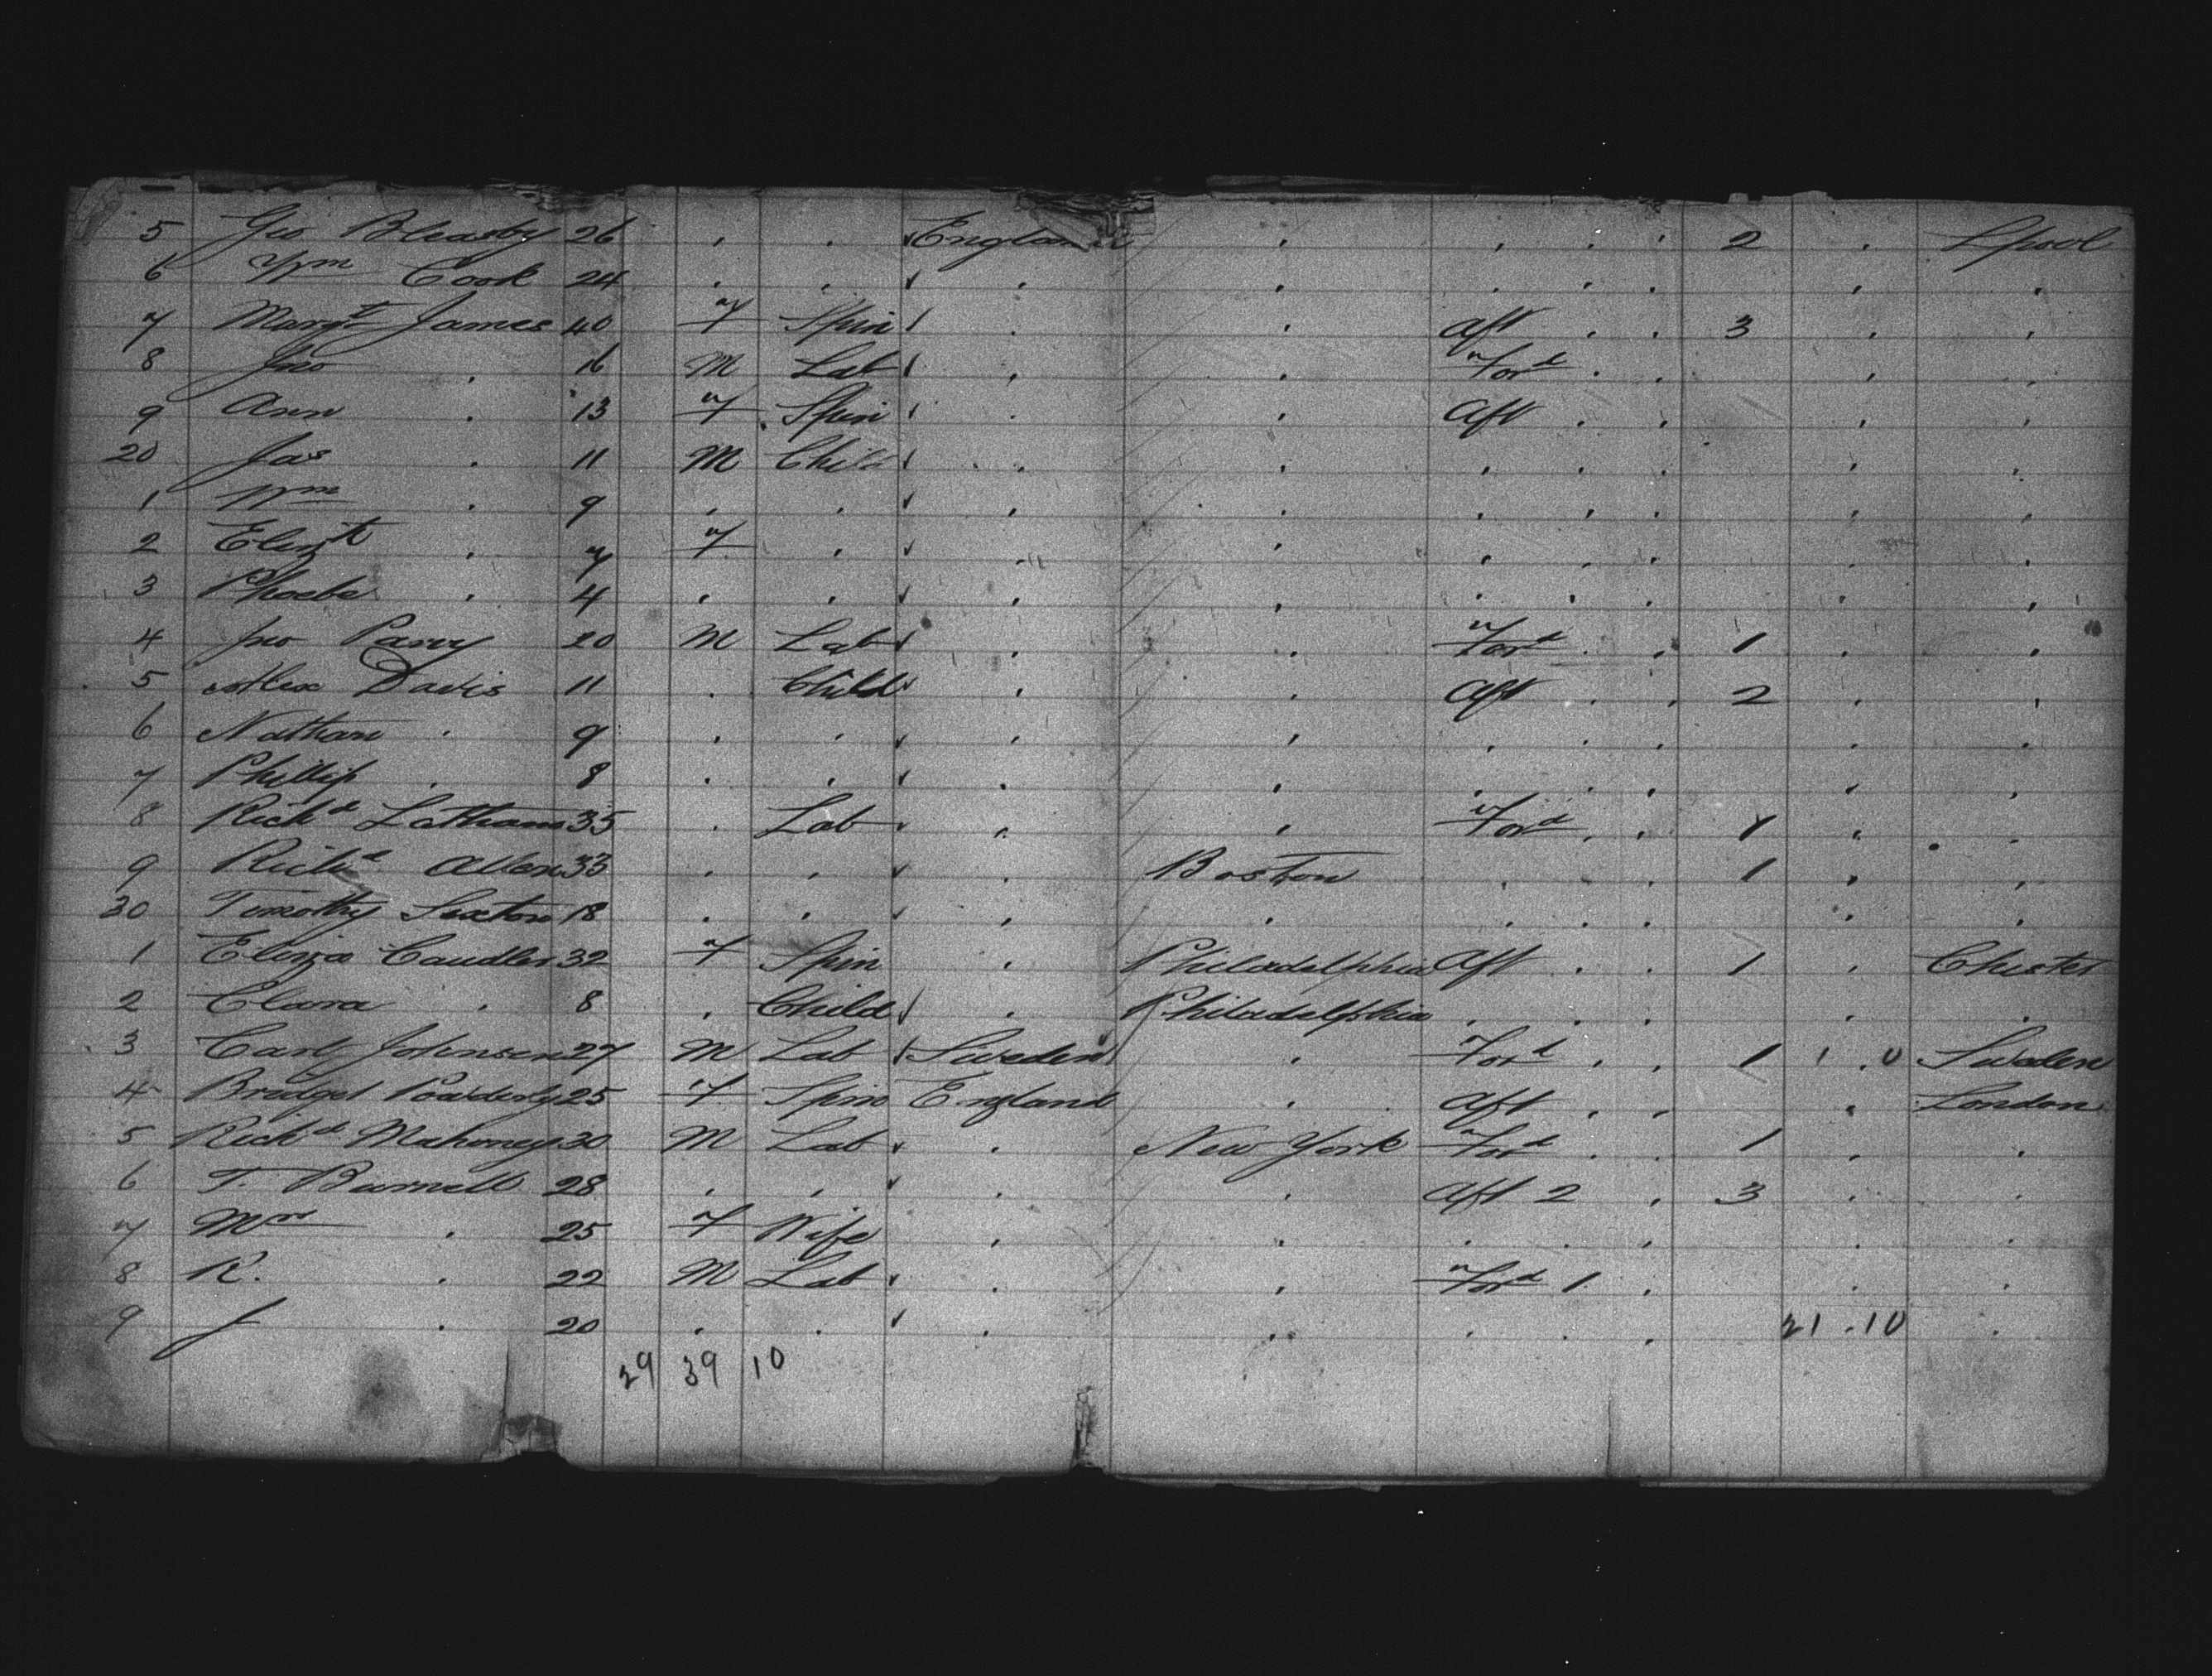 5 Geo Bleasby 26 . . ✓ England . . . . 2 . Lpool
6 Wm Cook 24 . . ✓ . . . . . . .
7 Margt James 40 F Spin ✓ . . Aft . . 3 . .
8 Jno . 16 M Lab ✓ . . Ford . . . .
9 Ann . 13 F Spin ✓ . . Aft . . . .
20 Jas . 11 M Child ✓ . . . . . . .
1 Wm . 9 . . ✓ . . . . . . .
2 Elizth . 7 F . ✓ . . . . . . .
3 Phoebe . 4 . . ✓ . . . . . . .
4 Jno Parry 20 M Lab ✓ . . Ford . . 1 . .
5 Alex Davis 11 . Child ✓ . . Aft . . 2 . .
6 Nathan . 9 . . ✓ . . . . . . .
7 Phillip . 8 . . ✓ . . . . . . .
8 Richd Latham 35 . Lab ✓ . . Ford . . 1 . .
9 Richd Allen 33 . . ✓ . Boston . . . 1 . .
30 Timothy Sexton 18 . . ✓ . . . . . . .
1 Eliza Caudler 32 F Spin . Philadelphia Aft . . 1 . Chester
2 Clara . 8 . Child ✓ . Philadelphia . . . . .
3 Carl Johnsen 27 M Lab ✓ Sweden . Ford . . 1 1 . 0 Sweden
4 Bridget 25 F Spin England . Aft . . . London
5 Richd Mahoney 30 M Lab ✓ . New York Ford . . 1 . .
6 T. Burnell 28 . . ✓ . . Aft 2 . 3 . .
7 Mrs . 25 F Wife . . . . . . .
8 R. . 22 M Lab ✓ . . Ford 1 . . .
9 J . 20 . . ✓ . . . . . 21 . 10 .
39 39 10